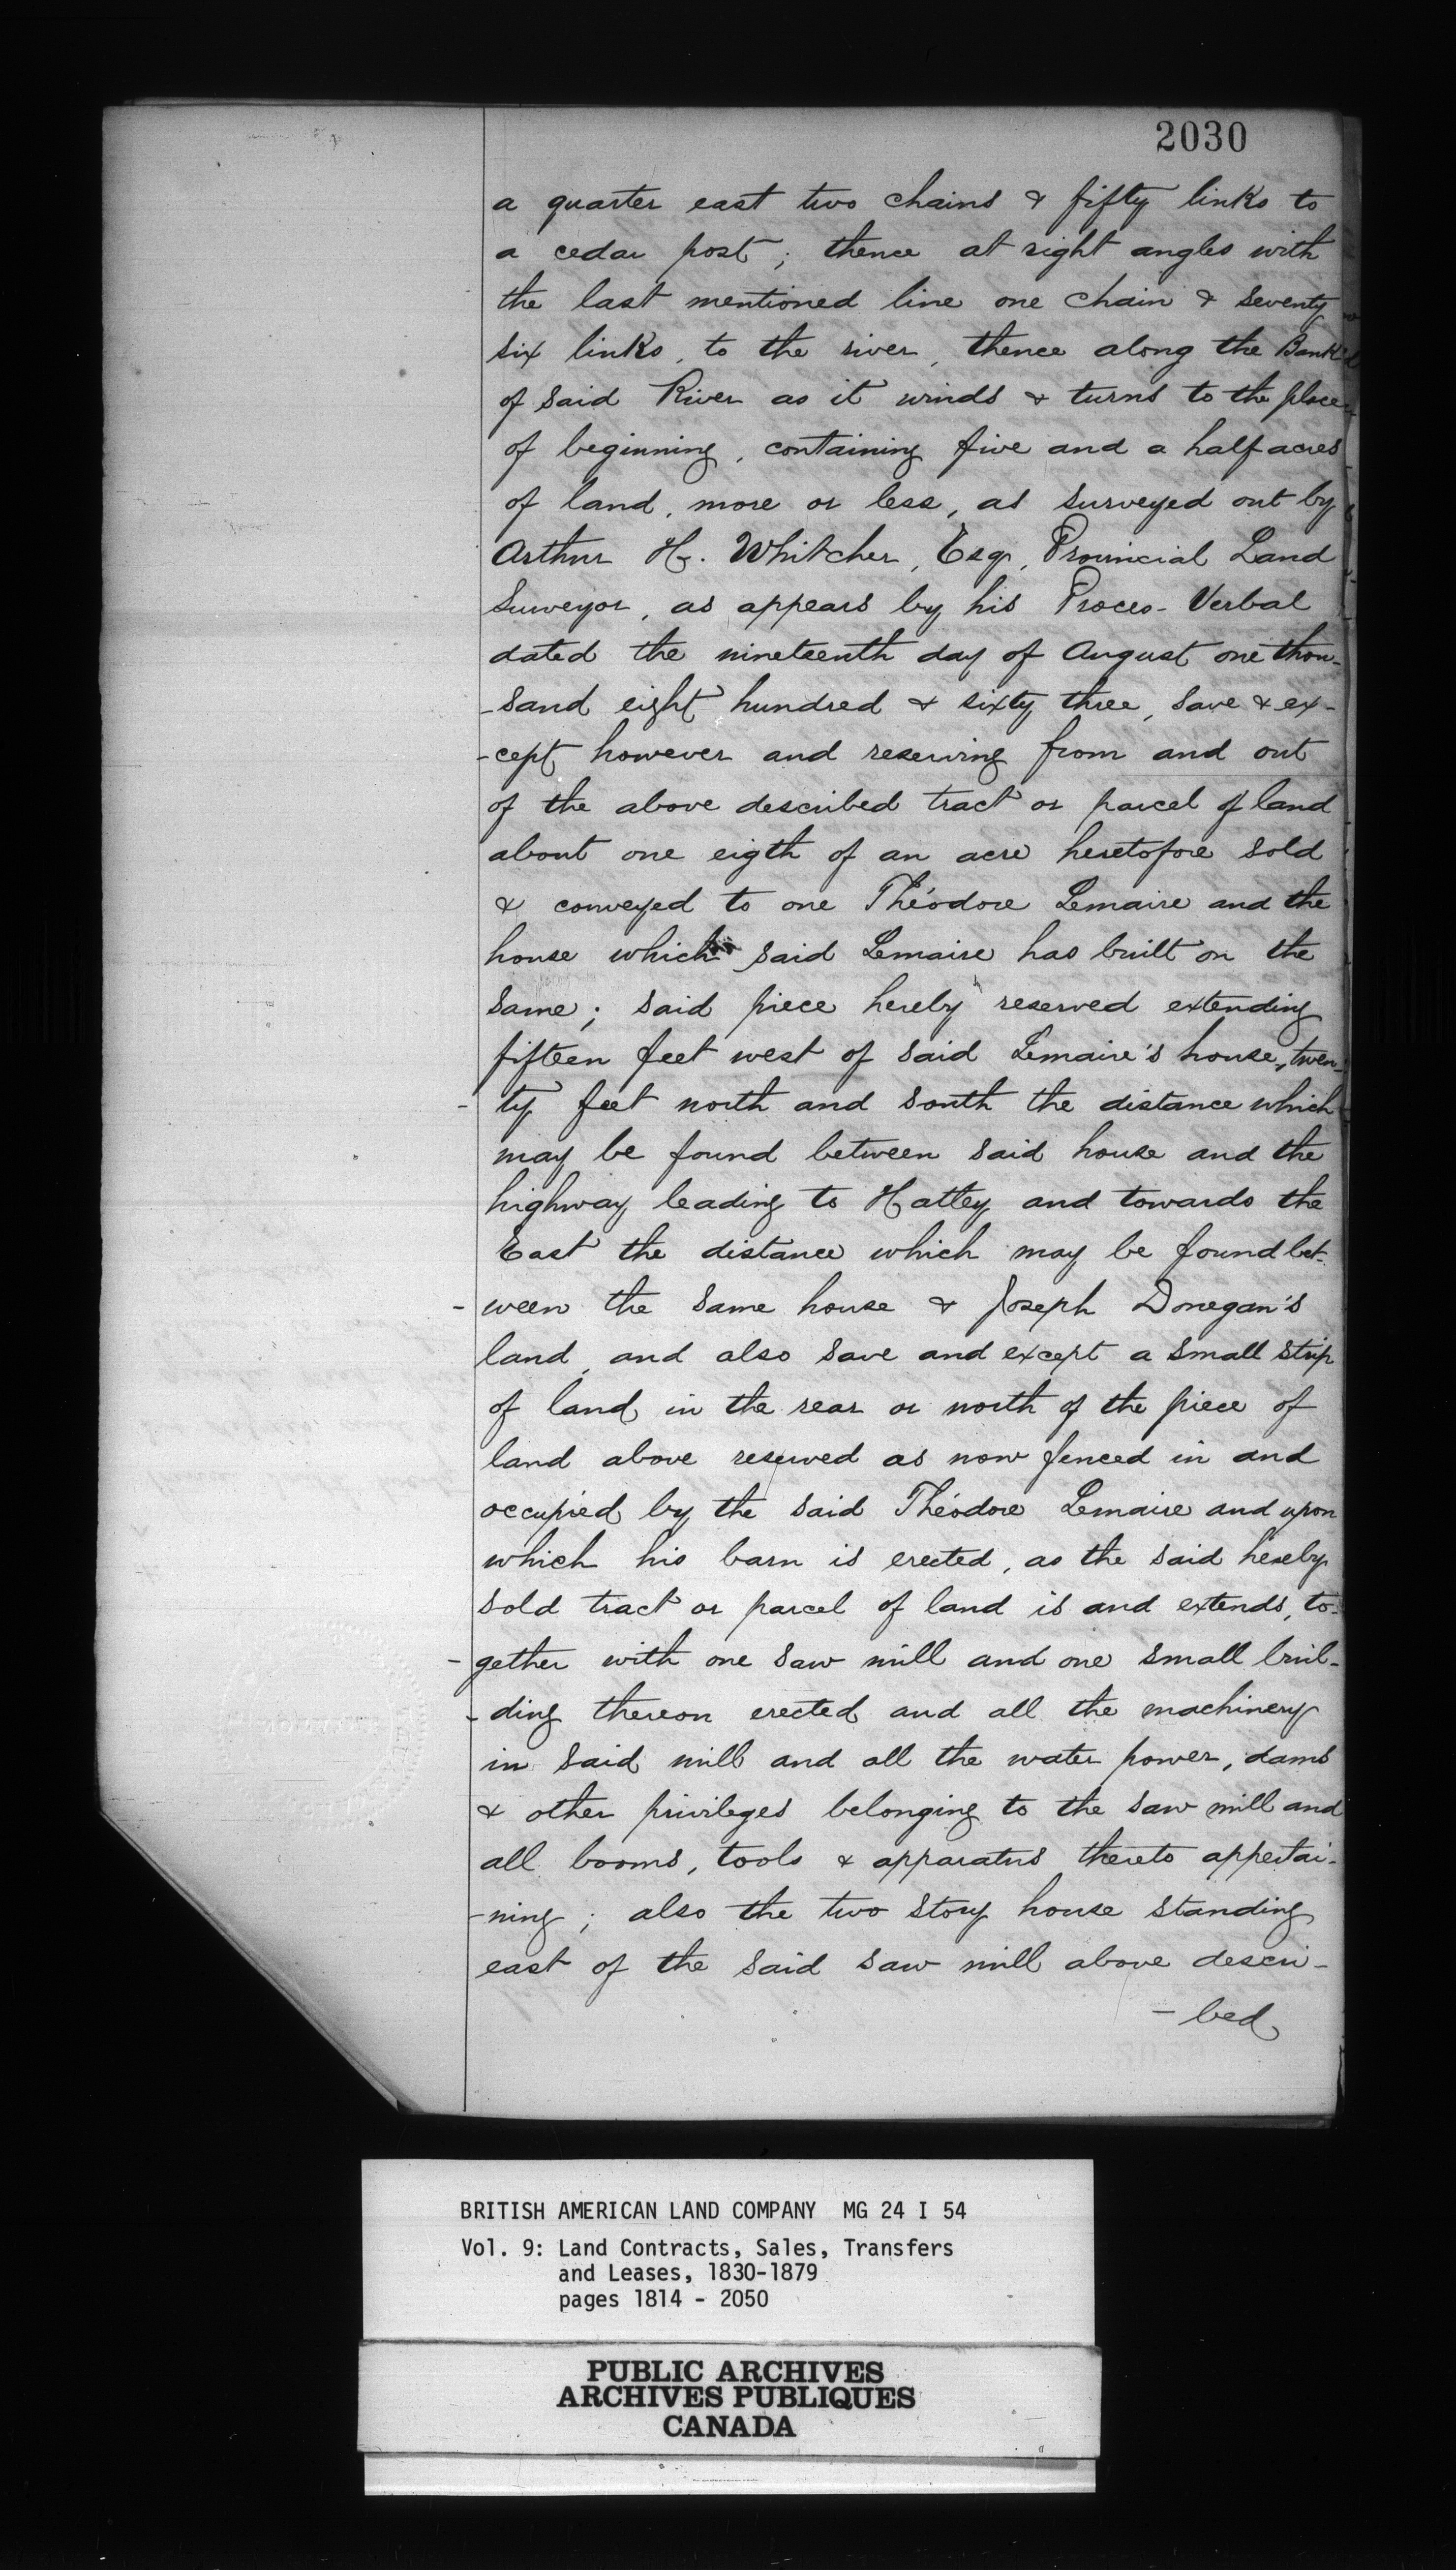 2030
a quarter east two chains & fifty links to
a cedar post ; thence at right angles with
the last mentioned line one chain & seventy
six links, to the river, thence along the Bank
of said River as it winds & turns to the place
of beginning, containing five and a half acres
of land, more or less, as surveyed out by
Arthur H. Whitcher, Esqr, Provincial Land
Surveyor, as appears by his Proces-Verbal
dated the nineteenth day of August one thou-
-sand eight hundred & sixty three, save & ex-
-cept however and reserving from and out
of the above described tract or parcel of land
about one eigth of an acre heretofore sold
& conveyed to one Théodore Lemaire and the
house which said Lemaire has built on the
same ; said piece hereby reserved extending
fifteen feet west of said Lemaire's house, twen-
- ty feet north and south the distance which
may be found between said house and the
highway leading to Hatley and towards the
East the distance which may be found bet-
- ween the same house & Joseph Donegan's
land, and also save and except a small strip
of land in the rear or north of the piece of
land above reserved as now fenced in and
occupied by the said Théodore Lemaire and upon
which his barn is erected, as the said hereby
sold tract or parcel of land is and extends, to-
- gether with one saw mill and one small buil-
- ding thereon erected and all the machinery
in said mill and all the water power, dams
& other privileges belonging to the saw mill and
all booms, tools & apparatus thereto appertai-
-ning ; also the two story house standing
east of the said saw mill above descri-
- bed
BRITISH AMERICAN LAND COMPANY MG 24 I 54
Vol. 9: Land Contracts, Sales, Transfers
and Leases, 1830-1879
pages 1814 - 2050
PUBLIC ARCHIVES
ARCHIVES PUBLIQUES
CANADA